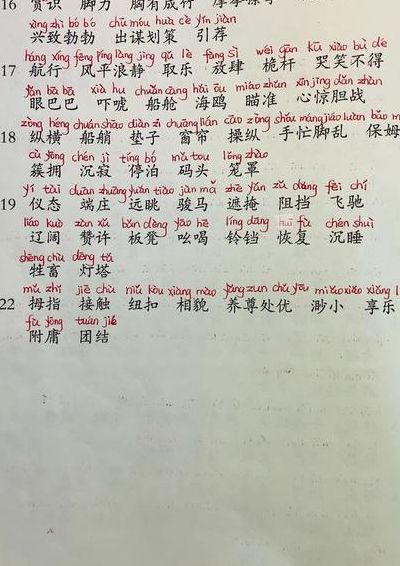 16 赏识 脚力 胸有成竹
xìng zhì bó bó chū móu huà cè yǐn jiàn
兴致勃勃 出谋划策 引荐
háng xíng fēng píng làng jìng qǔ lè fàng sì wéi gān kū xiào bù dé
17 航行 风平浪静 取乐 放肆 桅杆 哭笑不得
yǎn bā bā xià hu chuán cāng hǎi ōu miáo zhǔn xīn jīng dǎn zhàn
眼巴巴 吓唬 船舱 海鸥 瞄准 心惊胆战
zòng héng chuán shāo diàn zi chuāng lián cāo zòng shǒu máng jiǎo luàn bǎo m
18 纵横 船艄 垫子 窗帘 操纵 手忙脚乱 保姆
cù yōng chén jì tíng bó mǎ tou lǒng zhào
簇拥 沉寂 停泊 码头 笼罩
yí tài duān zhuāng yuǎn tiào jùn mǎ zhē yǎn zǔ dǎng fēi chí
19 仪态 端庄 远眺 骏马 遮掩 阻挡 飞驰
liáo kuò zàn xǔ bǎn dèng yāo hè líng dāng huī fù chén shuì
辽阔 赞许 板凳 吆喝 铃铛 恢复 沉睡
shēng chù dēng tǎ
牲畜 灯塔
mǔ zhǐ jiē chù niǔ kòu xiàng mào yǎng zūn chǔ yōu miǎo xiǎo xiǎng l
22 拇指 接触 纽扣 相貌 养尊处优 渺小 享乐
fù yōng tuán jié
附庸 团结